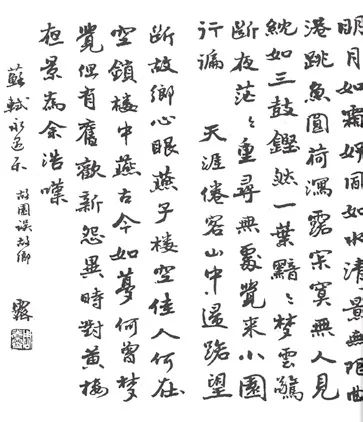 明月如霜好風如水清景無限曲
港跳魚圓荷瀉露寂寞無人見
紞如三鼓鏗然一葉黯〻夢雲驚
斷夜茫〻重尋無處覺來小園
行遍 天涯倦客山中歸路望
斷故鄉心眼燕子樓空佳人何在
空鎖樓中燕古今如夢何曾夢
覺但有舊歡新怨異時對黃樓
夜景為余浩嘆
蘇軾永遇樂 故園誤故鄉